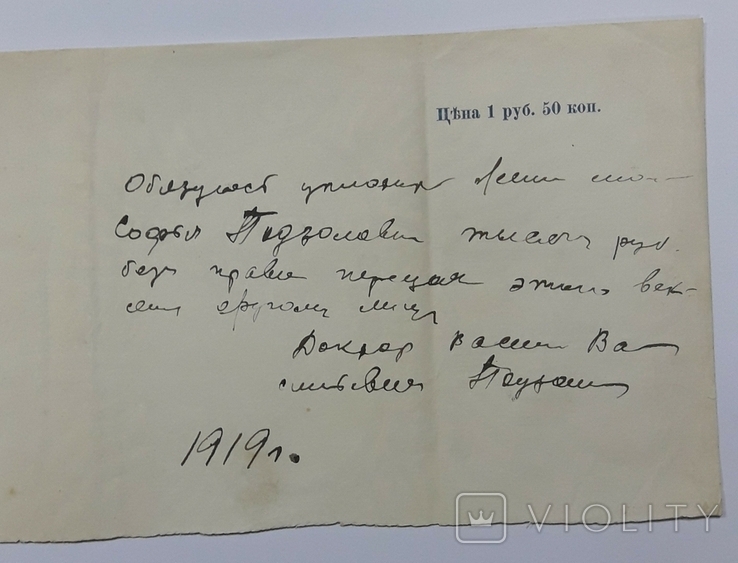 Цѣна 1 руб. 50 коп.
Обязуюсь уплатить
Софья Подзолович тысячу руб.
без права передачи этого век-
селя другому лицу
Доктор Васили Ва
сильевич
1919 г.
VIOLITY